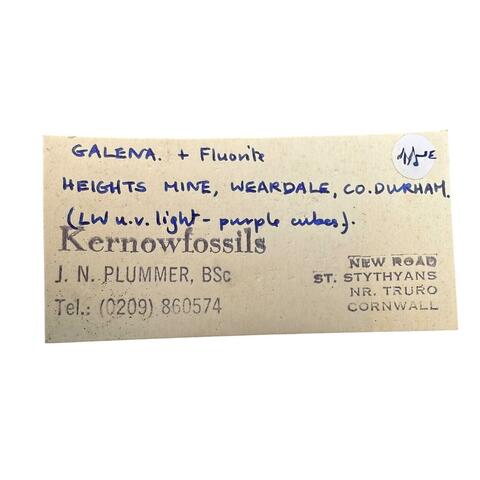 GALENA. + Fluorite
HEIGHTS MINE, WEARDALE, CO. DURHAM.
(LW u.v. light - purple cubes).
Kernowfossils
J. N. PLUMMER, BSc
Tel.: (0209) 860574
NEW ROAD
ST. STYTHYANS
NR. TRURO
CORNWALL